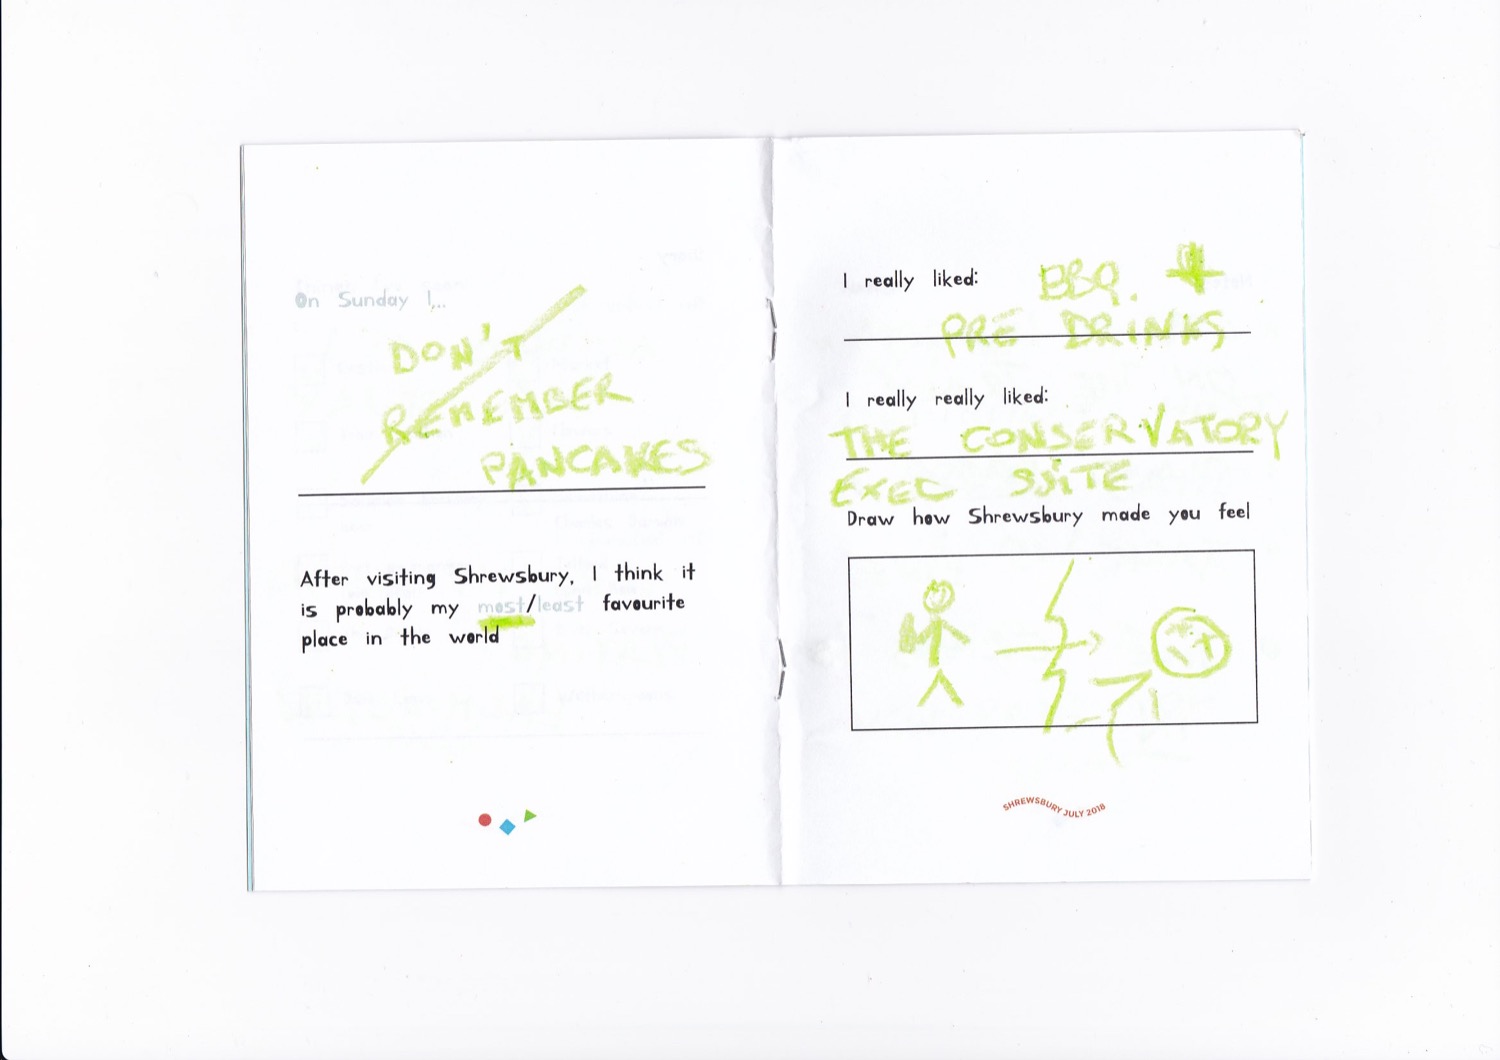 On Sunday I...
DON'T
REMEMBER
PANCAKES
After visiting Shrewsbury, I think it
is probably my most/least favourite
place in the world
I really liked: BBQ. +
PRE DRINKS
I really really liked:
THE CONSERVATORY
EXEC SUITE
Draw how Shrewsbury made you feel
SHREWSBURY JULY 2018